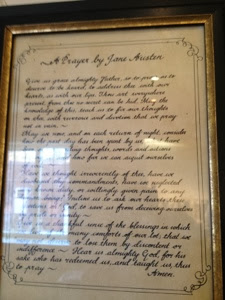 A Prayer by Jane Austen
Give us grace almighty Father, so to pray, as to
deserve to be heard, to address thee with our
hearts, as with our lips. Thou art everywhere
present, from thee no secret can be hid. May the
knowledge of this, teach us to fix our thoughts
on thee, with reverence and devotion that we pray
not in vain.
May we now, and on each return of night, consider
how the past day has been spent by us, have
thoughts, words and actions
how far we can acquit ourselves
irreverently of thee, have we
commandments, have we neglected
duty, or willingly given pain to any
Incline us to ask our hearts these
to save us from deceiving ourselves
by pride or vanity
sense of the blessings in which
many comforts of our lot; that we
to lose them by discontent or
indifference. Hear us almighty God, for his
sake who has redeemed us, and taught us thus
to pray. Amen.